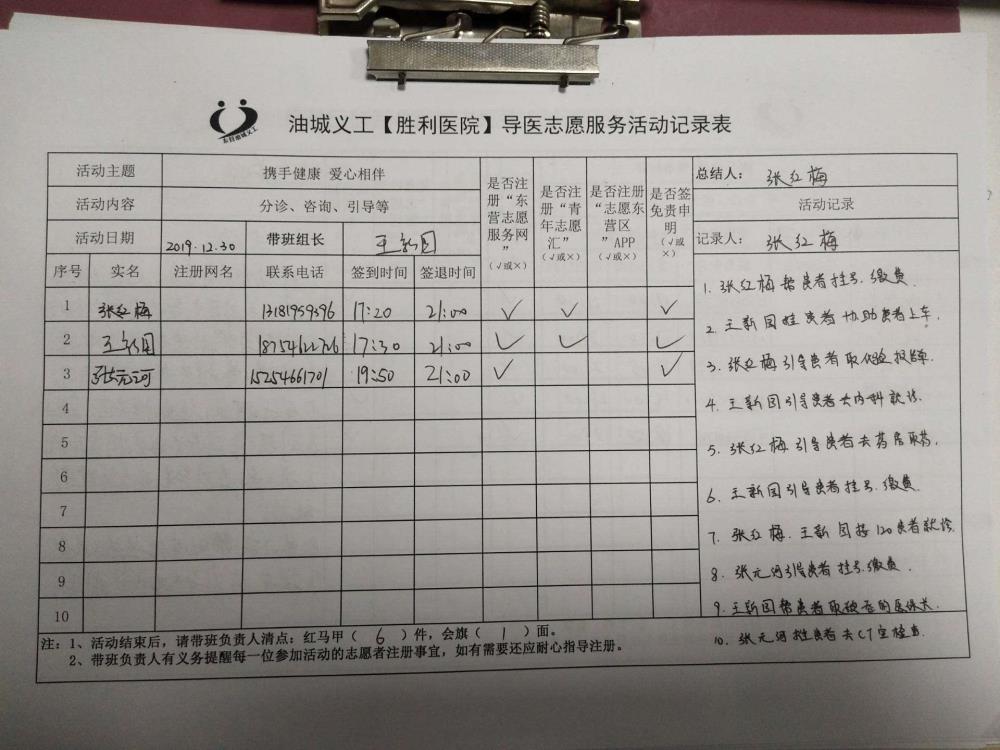 油城义工【胜利医院】导医志愿服务活动记录表
东营油城义工
活动主题 携手健康 爱心相伴 是否注册“东营志愿服务网”(√或×) 是否注册“青年志愿汇”(√或×) 是否注册“志愿东营区”APP(√或×) 是否签免责申明(√或×) 总结人: 张红梅
活动内容 分诊、咨询、引导等 活动记录
活动日期 2019.12.30 带班组长 王新国 记录人: 张红梅
序号 实名 注册网名 联系电话 签到时间 签退时间
1 张红梅 13181959396 17:20 21:00 √ √ √
2 王新国 18754622726 17:30 21:00 √ √ √
3 张元河 15254661701 19:50 21:00 √ √
4
5
6
7
8
9
10
1. 张红梅帮患者挂号.缴费.
2. 王新国推患者协助患者上车.
3. 张红梅引导患者取化验报告单.
4. 王新国引导患者去内科就诊.
5. 张红梅引导患者去药房取药.
6. 王新国引导患者挂号.缴费.
7. 张红梅.王新国接120患者就诊.
8. 张元河引导患者挂号.缴费.
9. 王新国帮患者取的医保卡.
10. 张元河推患者去CT室检查.
注:1、活动结束后,请带班负责人清点:红马甲( 6 )件,会旗( 1 )面。
2、带班负责人有义务提醒每一位参加活动的志愿者注册事宜,如有需要还应耐心指导注册。